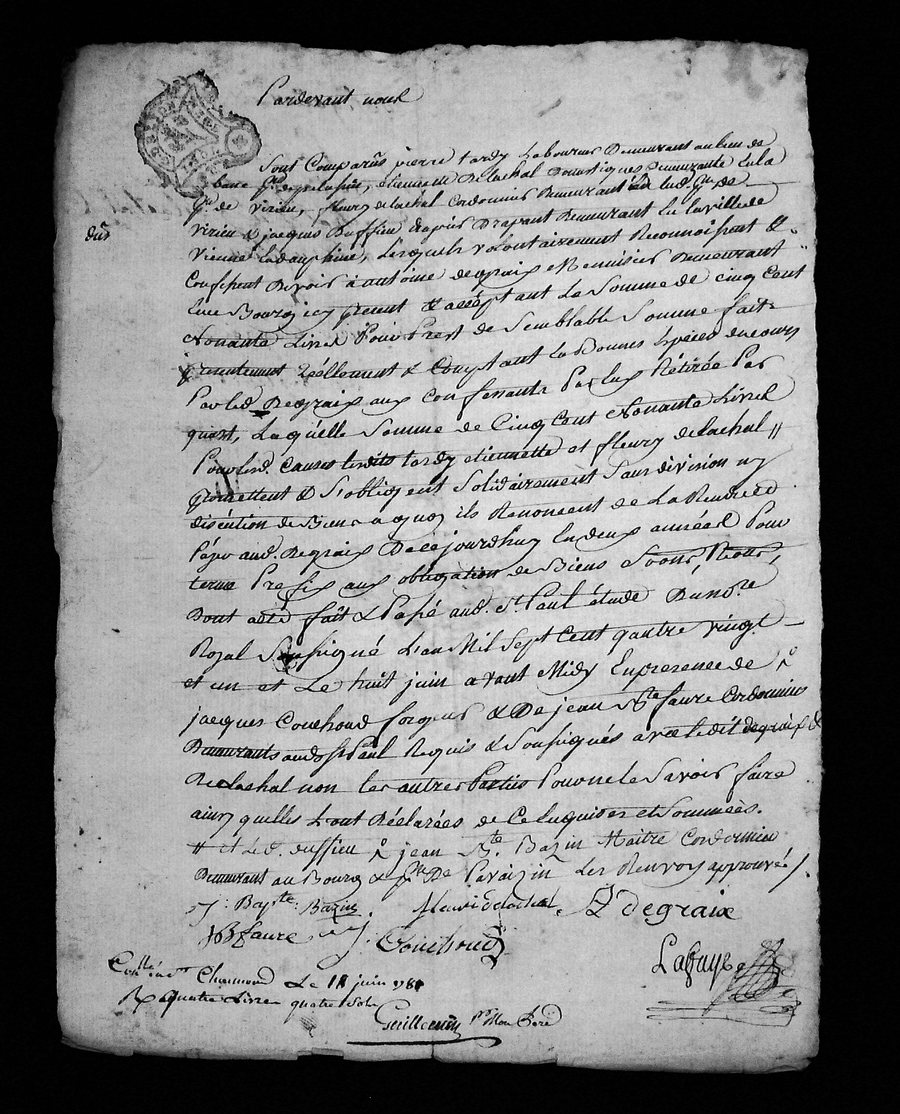 Pardevant nous
Sont Comparûs pierre tardy Laboureur Demeurant au lieu de
psse de pelussin, etiennette Delachal Domestique Demeurante en la
psse de Virieu, fleury delachal Cordonnier Demeurant en lad. psse de
Virieu & jacques Duffieu Drapant Demeurant en la ville de
dus
Vienne en dauphiné, Lesquels volontairement Reconnoissent &
Confessent Devoir à antoine degraix Menuisier Demeurant
Bourg icy present & acceptant La Somme de cinq Cent
Nonante Livres Pour Prest de Semblable Somme fait
presentement Réellement & Comptant en Bonnes Especes du cours
Par led. Degraix aux Confessants Par Eux Retirée Par
quoy, Laquelle Somme de Cinq Cent Nonante Livres
Pour lesd. Causes lesdits tardy etiennette et fleury delachal //
promettent & S'obligent Solidairement Sans division ny
discution de Biens a quoy ils Renoncent de La Rendre &
Payer aud. Degraix De ce jourdhuy En deux années Pour
terme Prefix aux obligation de Biens
Dont acte fait & Passé aud. St Paul étude Du nore
Royal Soussigné L'an Mil Sept Cent quatre vingt
et un et Le huit juin avant Midy En presence de
jacques Couchoud forgeur & De jean Bte faure Cordonnier
Demeurants aud St Paul Requis & Soussignés avec ledit degraix &
Delachal non les autres Parties Pour ne le Savoir faire
ainsy quelles L'ont Déclarées de Ce Enquises et Sommées.
// et Led. duffieu & jean Bte Bazin Maitre Cordonnier
Demeurant au Bourg & psse De Pavezin Les Renvoy approuvés /.
J: Bapte: Bazin fleuri delachal A degraix
JB faure Couchoud
Lafaye
Conlle à St Chaumond Le 18 juin 1781
Rx quatre Livre quatre Sols
Guillermin pr Mon Pere